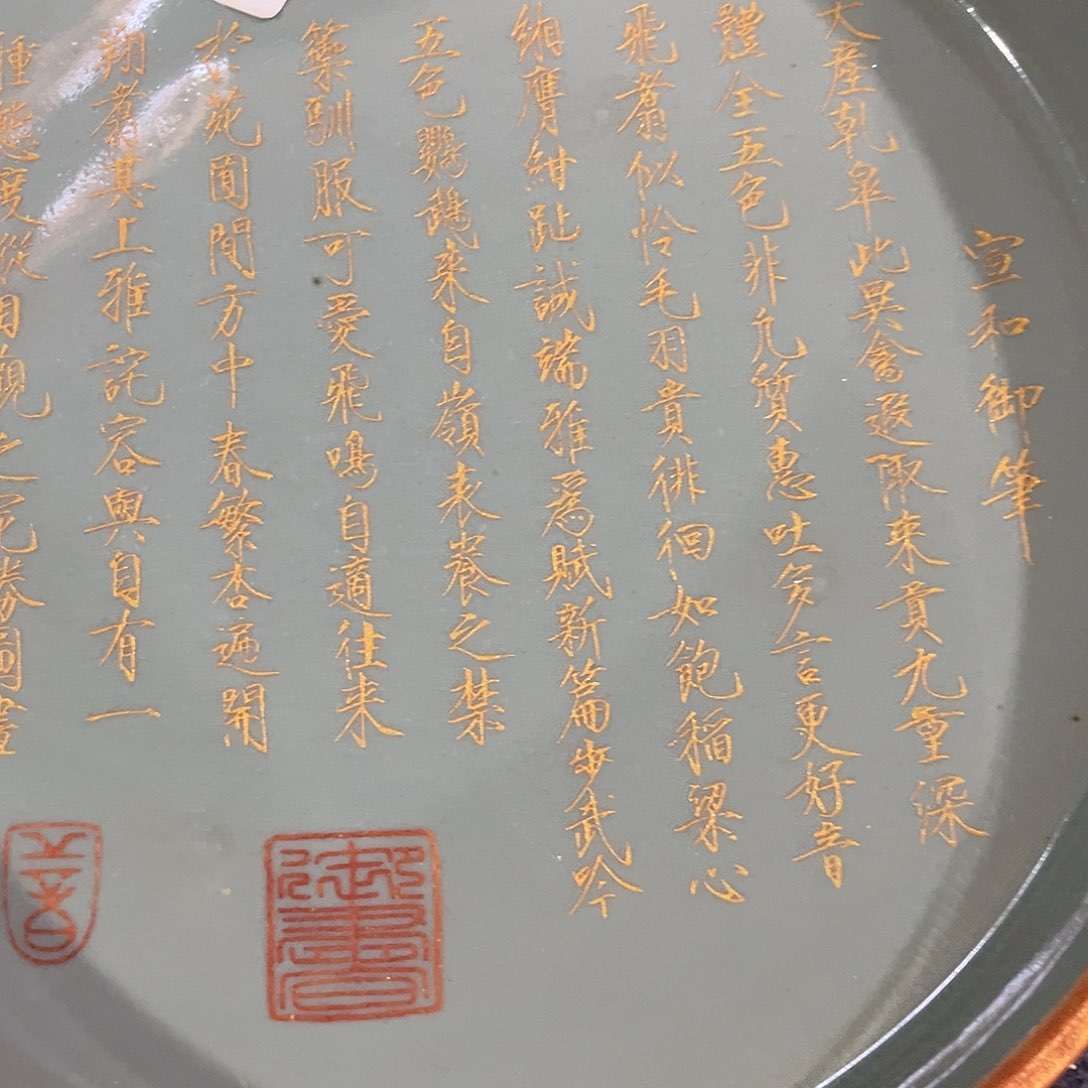 宣和御筆
天産乾皐此異禽遐陬来貢九重深
體全五色非凡質惠吐多言更好音
飛翥似怜毛羽貴徘徊如飽稻梁心
緗膺紺趾誠端雅爲賦新篇步武吟
五色鸚鵡来自嶺表養之禁
籞馴服可愛飛鳴自適往来
於苑囿間方中春繁杏遍開
翔翥其上雅詫容與自有一
種態度縱目觀之宛勝圖畫
御書